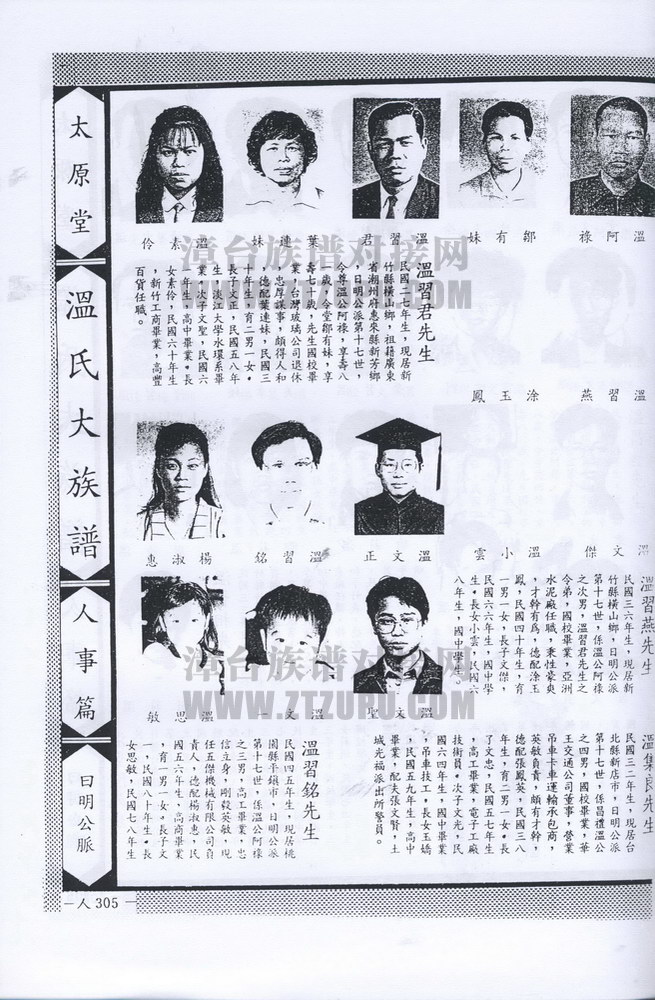 太原堂
溫氏大族譜
人事篇
日明公脈
溫阿祿
鄒有妹
溫習君
葉連妹
溫素伶
溫習君先生
民國二七年生，現居新
竹縣橫山鄉，祖籍廣東
省潮州府惠來縣新芳鄉
，日明公派第十七世，
令尊溫公阿祿，享壽八
一歲，令堂鄒有妹，享
壽七十歲，先生國校畢
業，台灣玻璃公司退休
，忠厚謀事，頗得人和
，德配葉連妹，民國三
十年生，育二男一女。
長子文正，民國五八年
生，淡江大學水環系畢
業，次子文聖，民國六
一年生，高中畢業。長
女素伶，民國六十年生
，新竹工商畢業，高豐
百貨任職。
溫習燕
涂玉鳳
溫文傑
溫小雲
溫文正
溫習銘
楊淑惠
溫習燕先生
民國三六年生，現居新
竹縣橫山鄉，日明公派
第十七世，係溫公阿祿
之次男，溫習君先生之
令弟，國校畢業，亞洲
水泥廠任職，秉性豪爽
，才幹有為，德配涂玉
鳳，民國四十年生，育
一男一女，長子文傑，
民國六六年生，國中學
生。長女小雲，民國六
八年生，國中學生。
溫文聖
溫文一
溫思敏
溫集良先生
民國三二年生，現居台
北縣新店市，日明公派
第十七世，係昌禮溫公
之四男，國校畢業，華
王交通公司董事，營業
吊車卡車運輸承包商，
英敏負責，頗有才幹，
德配張鳳英，民國三八
年生，育二男一女。長
子文忠，民國五七年生
，高工畢業，電子工廠
技術員。次子文光，民
國六四年生，國中畢業
，吊車技工，長女玉嬌
，民國五九年生，高中
畢業，配夫張文賢，土
城光福派出所警員。
溫習銘先生
民國四五年生，現居桃
園縣平鎮市，日明公派
第十七世，係溫公阿祿
之三男，高工畢業，忠
信立身，剛毅英敏，現
任五傑機械有限公司負
責人，德配楊淑惠，民
國五六年生，高商畢業
，育一男一女。長子文
一，民國八十年生。長
女思敏，民國七八年生
－人 305－
漳台族谱对接网
WWW.ZTZUPU.COM
漳台族谱对接网
WWW.ZTZUPU.COM